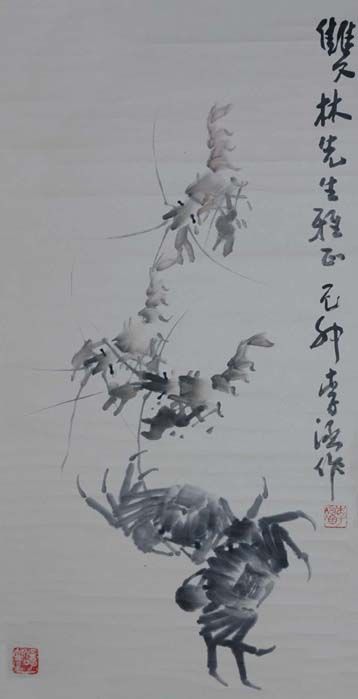 雙林先生雅正 己卯 李作